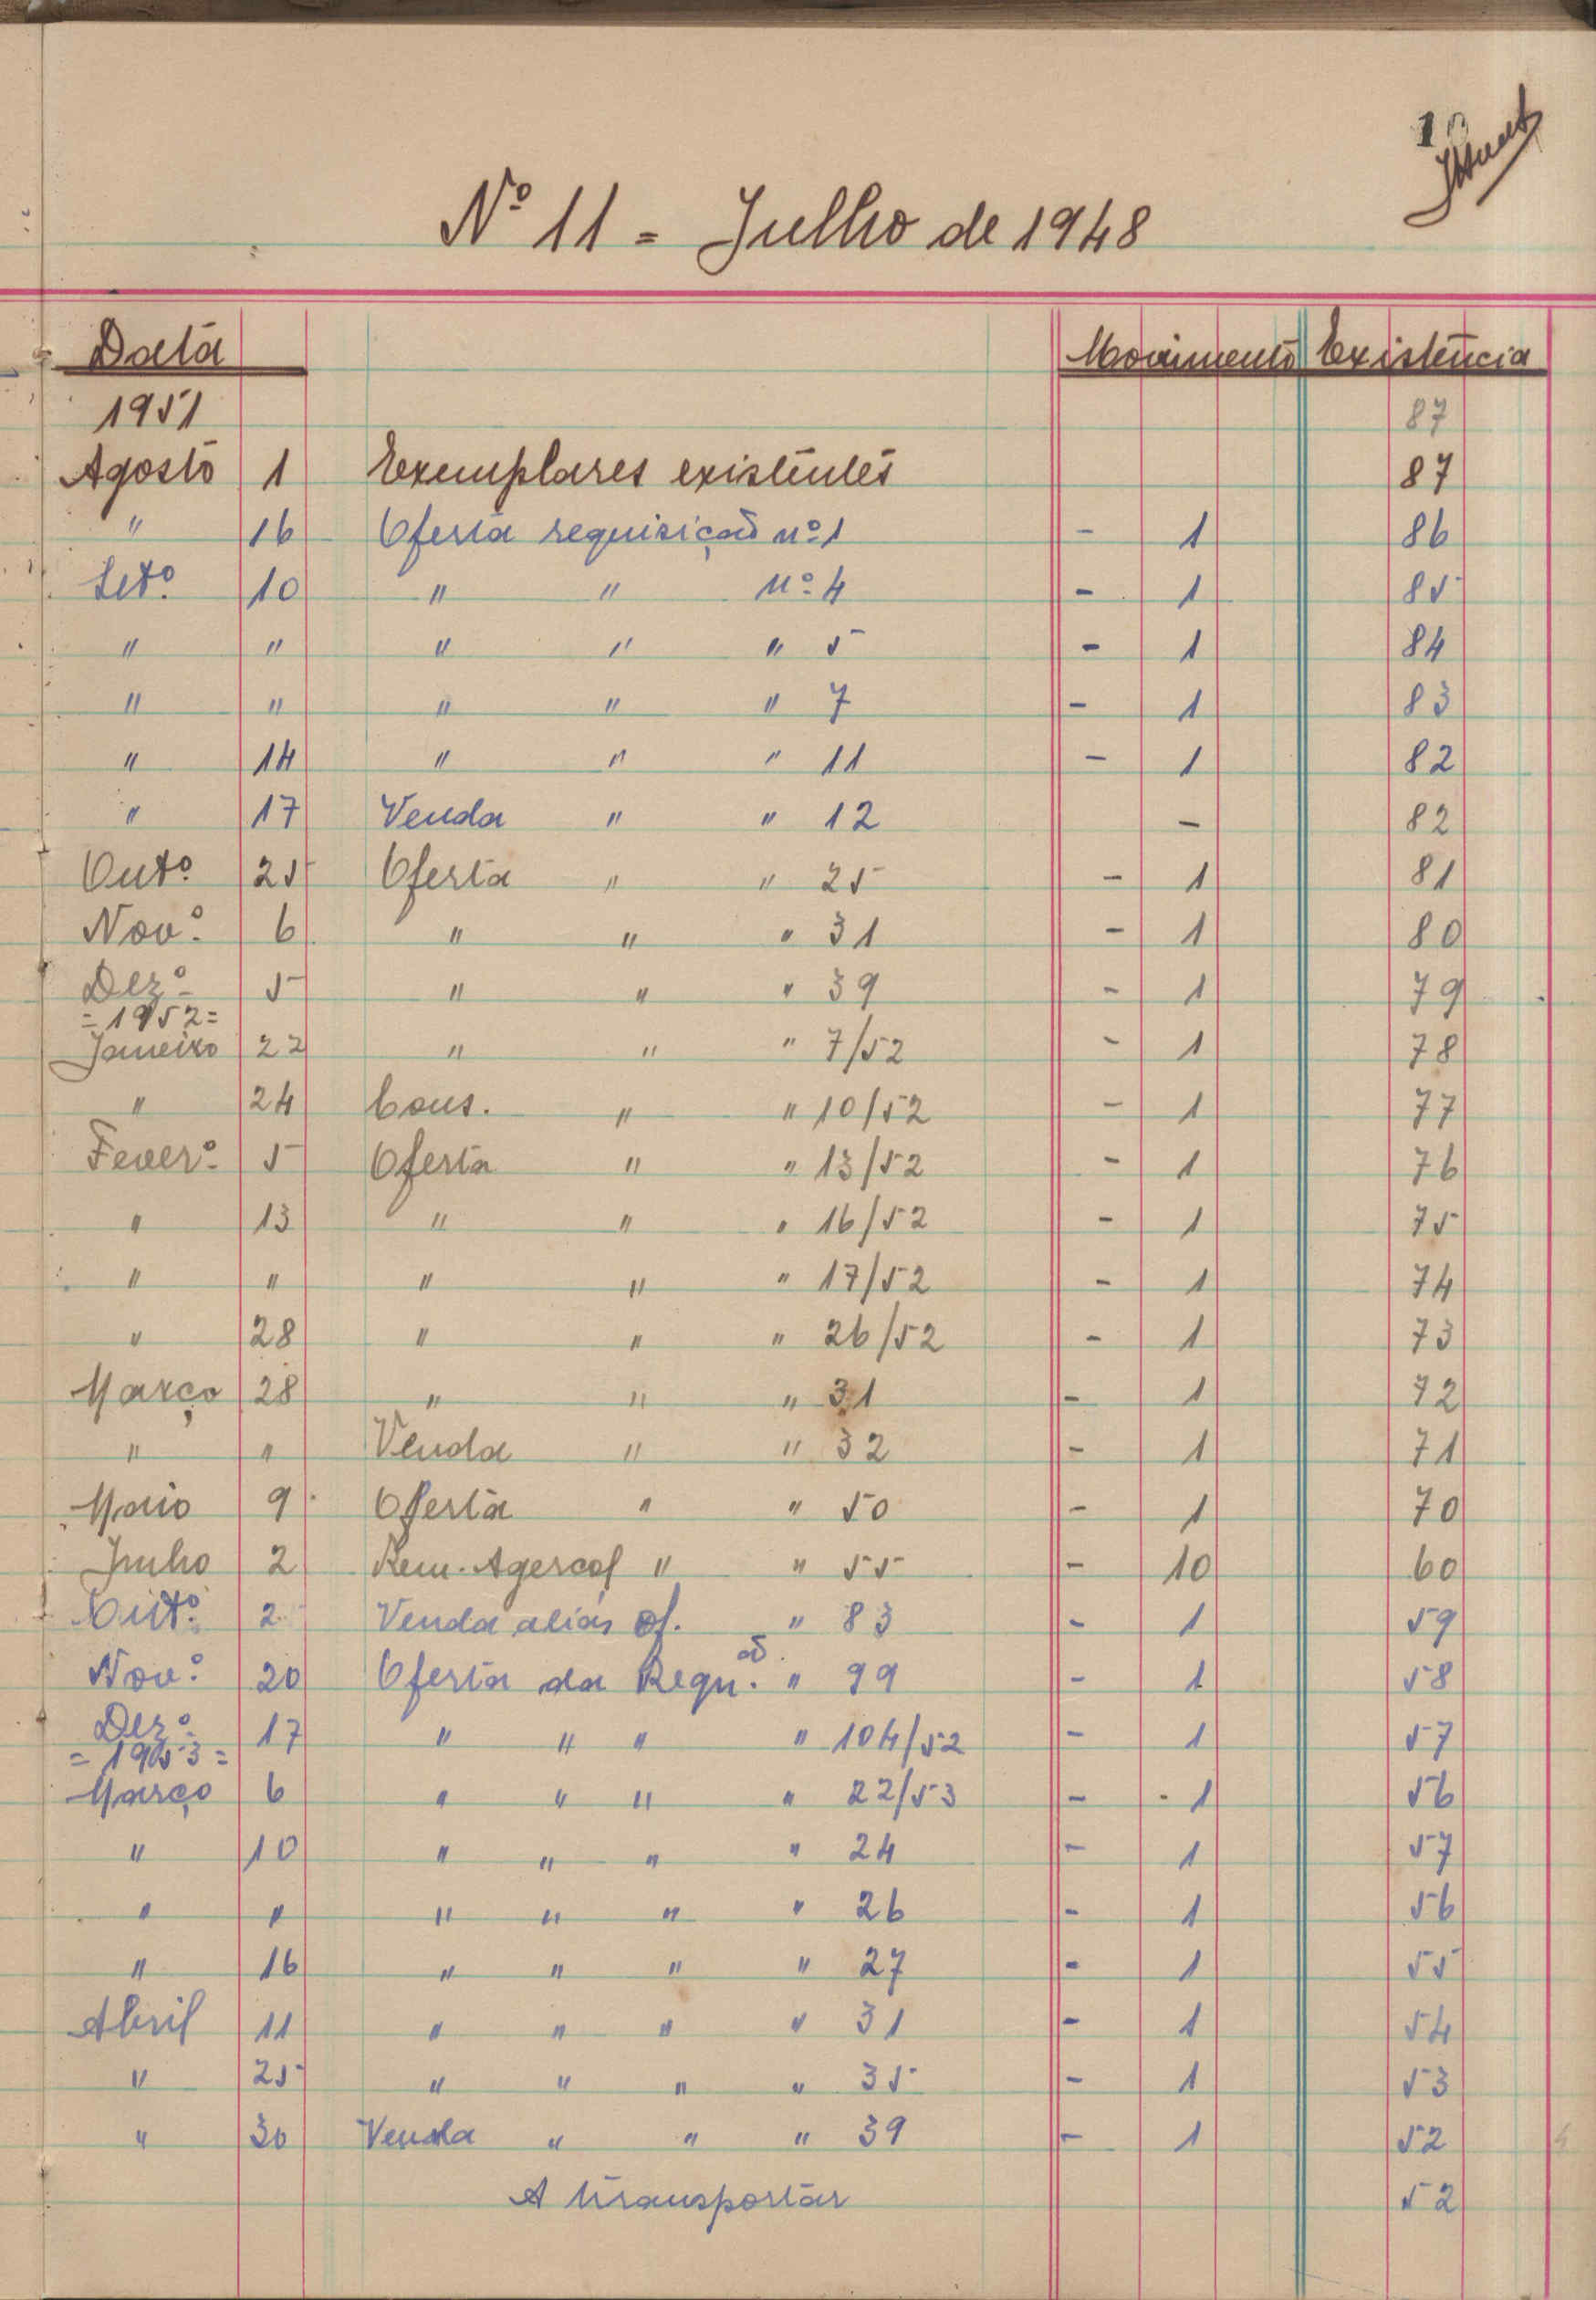 10
Nº 11 = Julho de 1948
Data Movimento Existência
1951 87
Agosto 1 Exemplares existentes 87
" 16 Oferta requisição nº 1 - 1 86
Setº 10 " " nº 4 - 1 85
" " " " " 5 - 1 84
" " " " " 7 - 1 83
" 14 " " " 11 - 1 82
" 17 Venda " " 12 - 82
Outº 25 Oferta " " 25 - 1 81
Novº 6 " " " 31 - 1 80
Dezº 5 " " " 39 - 1 79
= 1952 =
Janeiro 22 " " " 7/52 - 1 78
" 24 Cons. " " 10/52 - 1 77
Feverº 5 Oferta " " 13/52 - 1 76
" 13 " " " 16/52 - 1 75
" " " " " 17/52 - 1 74
" 28 " " " 26/52 - 1 73
Março 28 " " " 31 - 1 72
" " Venda " " 32 - 1 71
Maio 9 Oferta " " 50 - 1 70
Junho 2 Rem. Agercol " " 55 - 10 60
Outº 2 Venda aliás of. " 83 - 1 59
Novº 20 Oferta da Requ.ão " 99 - 1 58
Dezº 17 " " " " 104/52 - 1 57
= 1953 =
Março 6 " " " " 22/53 - 1 56
" 10 " " " " 24 - 1 57
" " " " " " 26 - 1 56
" 16 " " " " 27 - 1 55
Abril 11 " " " " 31 - 1 54
" 25 " " " " 35 - 1 53
" 30 Venda " " " 39 - 1 52
A transportar 52